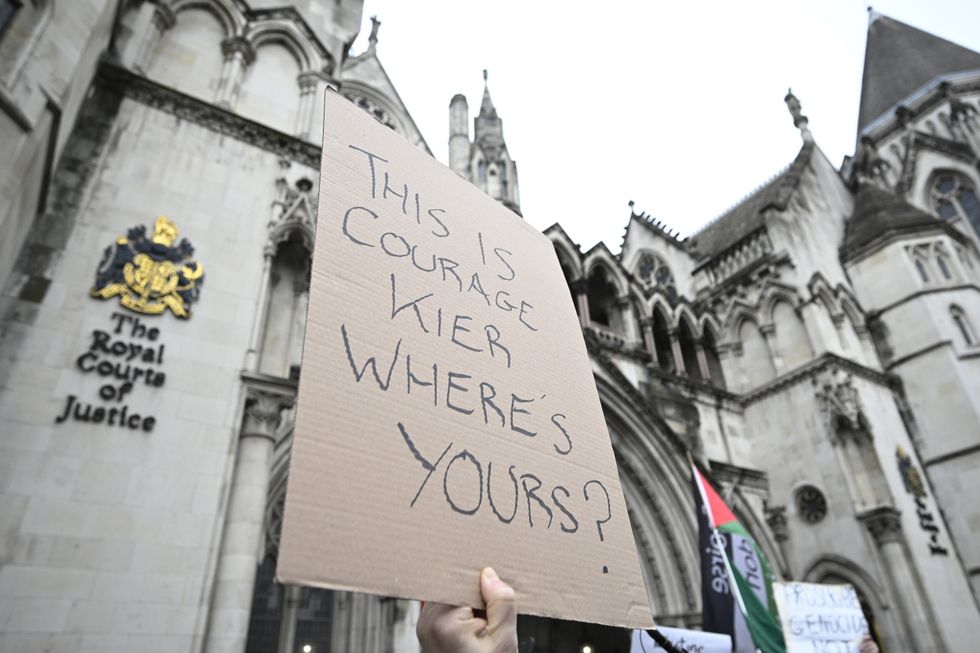 The
Royal
Courts
of
Justice
THIS IS
COURAGE
KIER
WHERE'S
YOURS?
PROSCRIBE
GENOCIDE
NOT